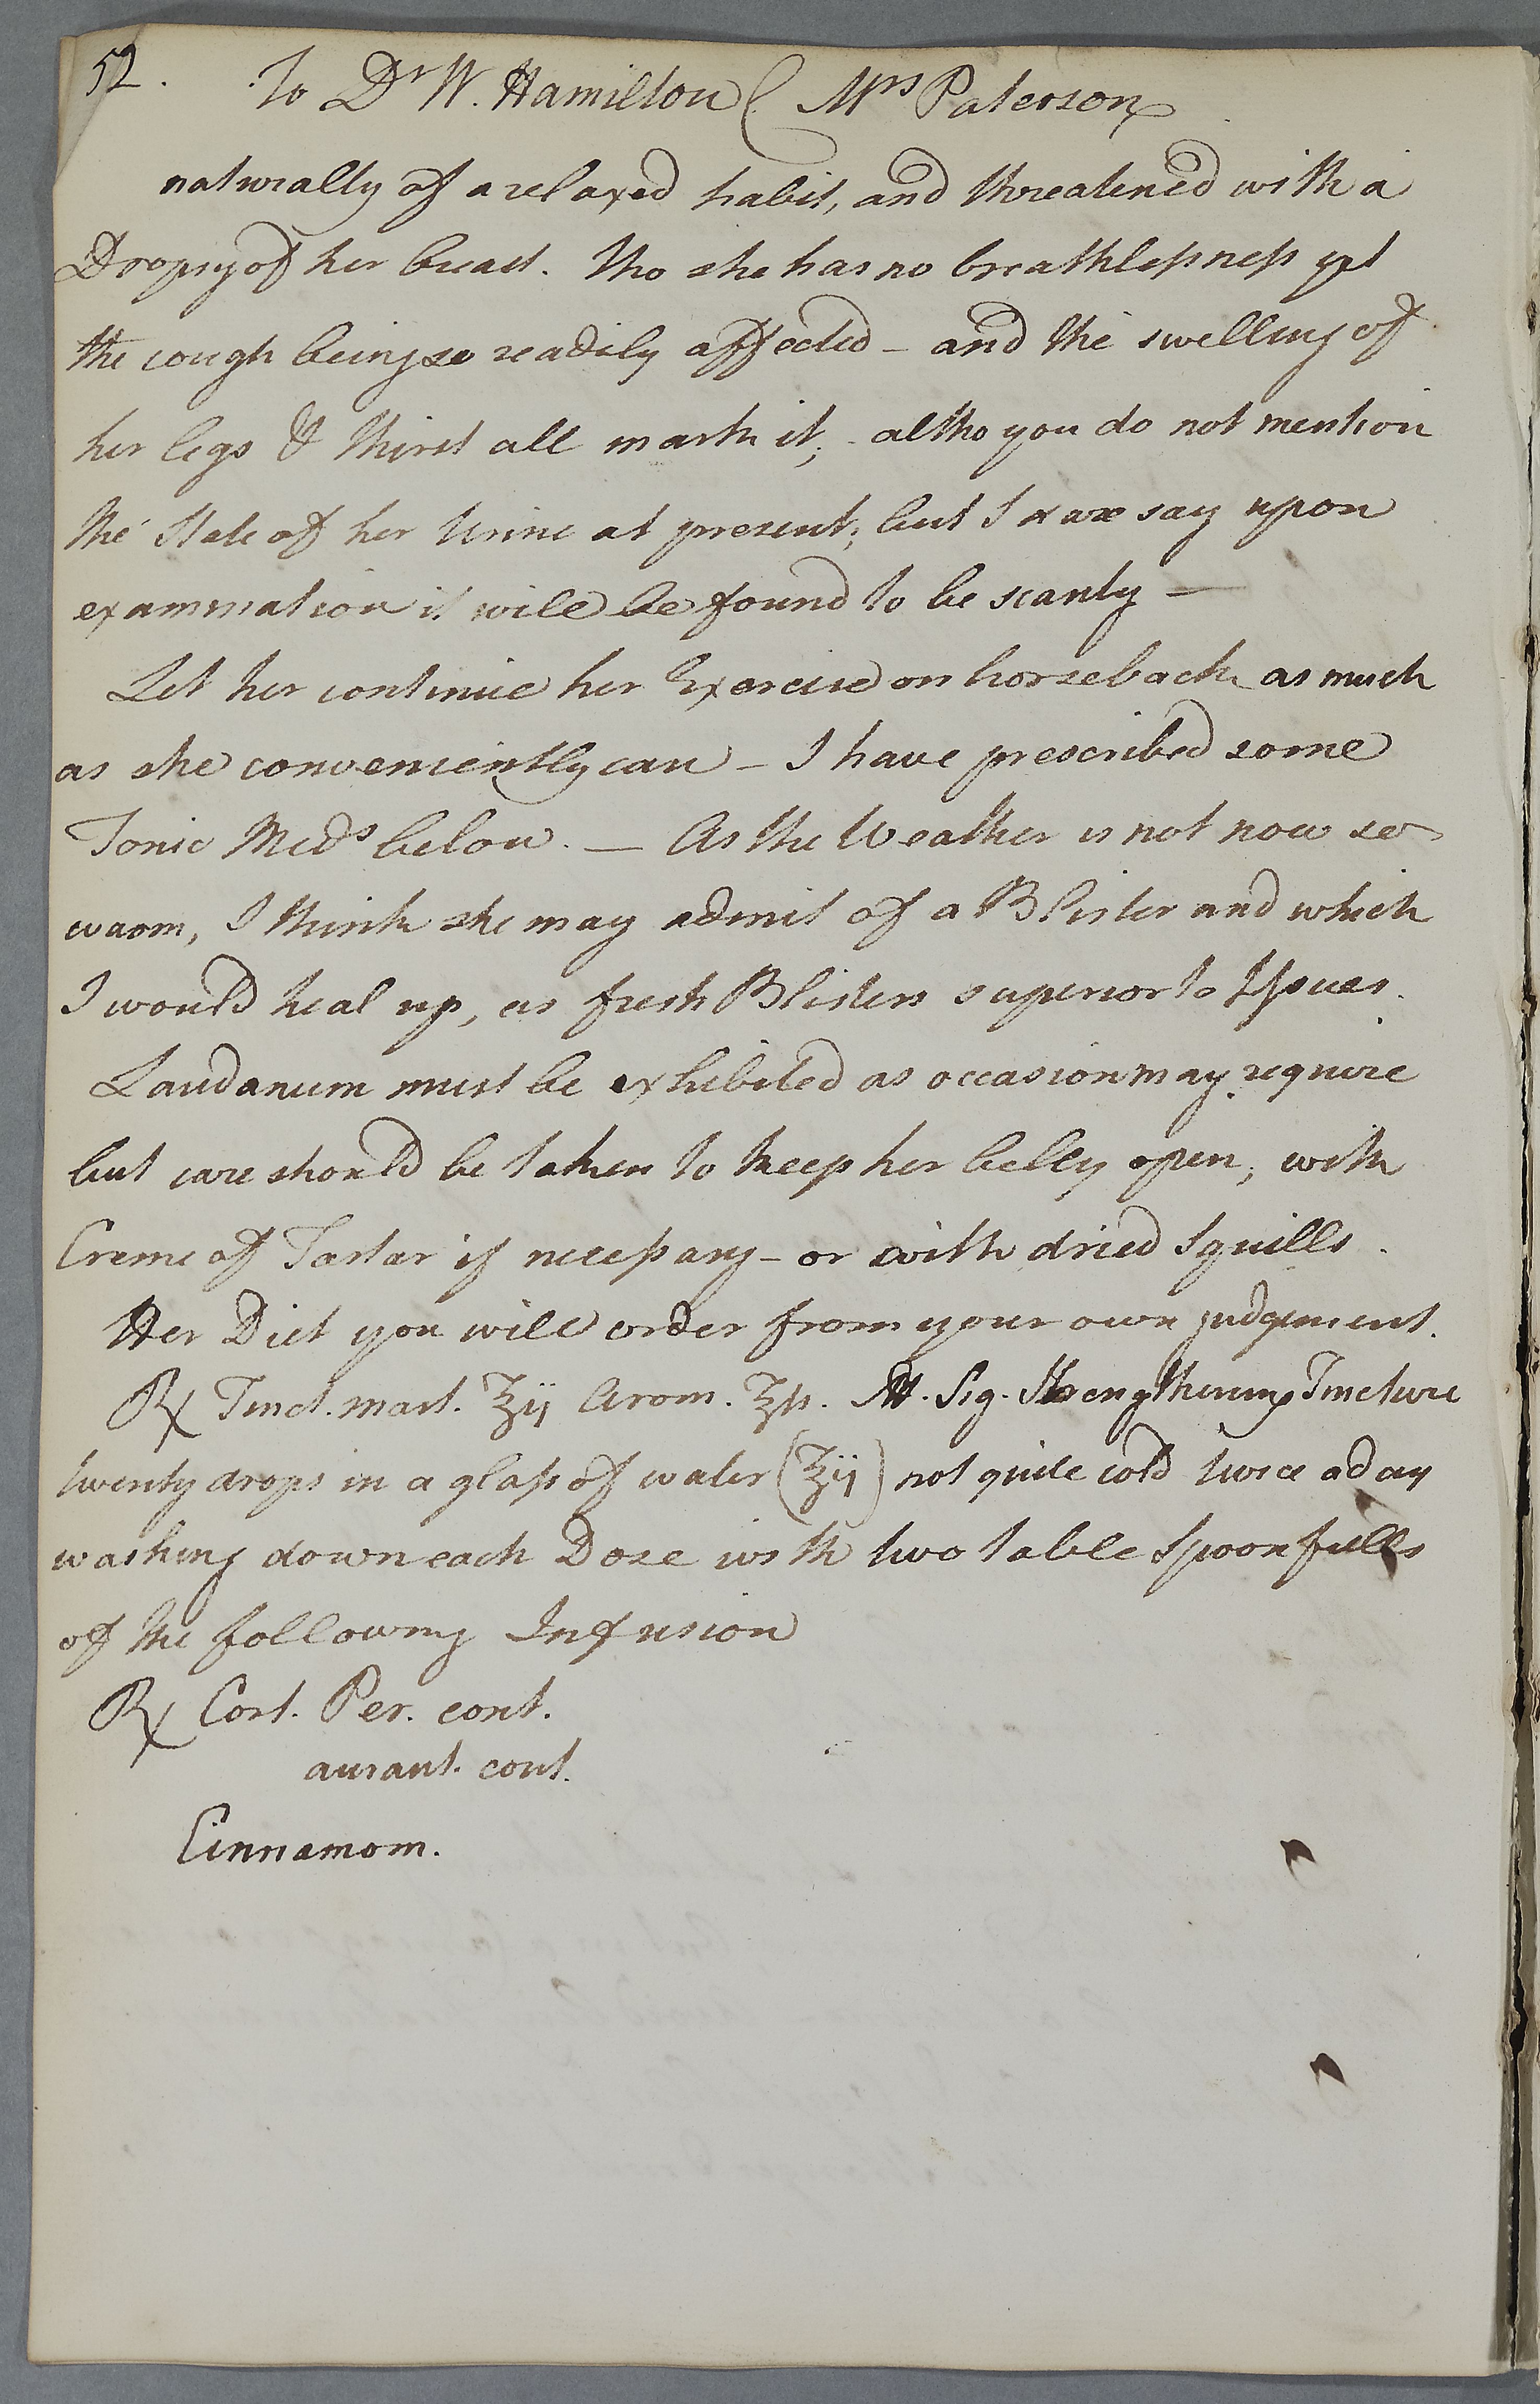 52. To Dr W. Hamilton ( Mrs Paterson
naturally of a relaxed habit, and threatened with a
Dropsy of her breast. Tho she has no breathlessness yet
the cough being so readily affected - and the swelling of
her legs & thirst all mark it; altho you do not mention
the State of her Urine at present; but I dare say upon
examination it will be found to be scanty —
Let her continue her Exercise on horseback as much
as she conveniently can - I have prescribed some
Tonic Meds below. — As the Weather is not now so
warm, I think she may admit of a Blister and which
I would heal up, as fresh Blisters superior to Issues.
Laudanum must be exhibited as occasion may require
but care should be taken to keep her belly open; with
Creme of Tartar if necessary - or with dried Squills.
Her Diet you will order from your own judgement.
℞ Tinct. mart. ʒij Arom. ʒß. M. Sig. Strengthening Tincture
twenty drops in a glass of water (ʒij) not quite cold twice a day
washing down each Dose with two table Spoonfulls
of the following Infusion
℞ Cort. Per. cont.
aurant. cont.
Cinnamom.